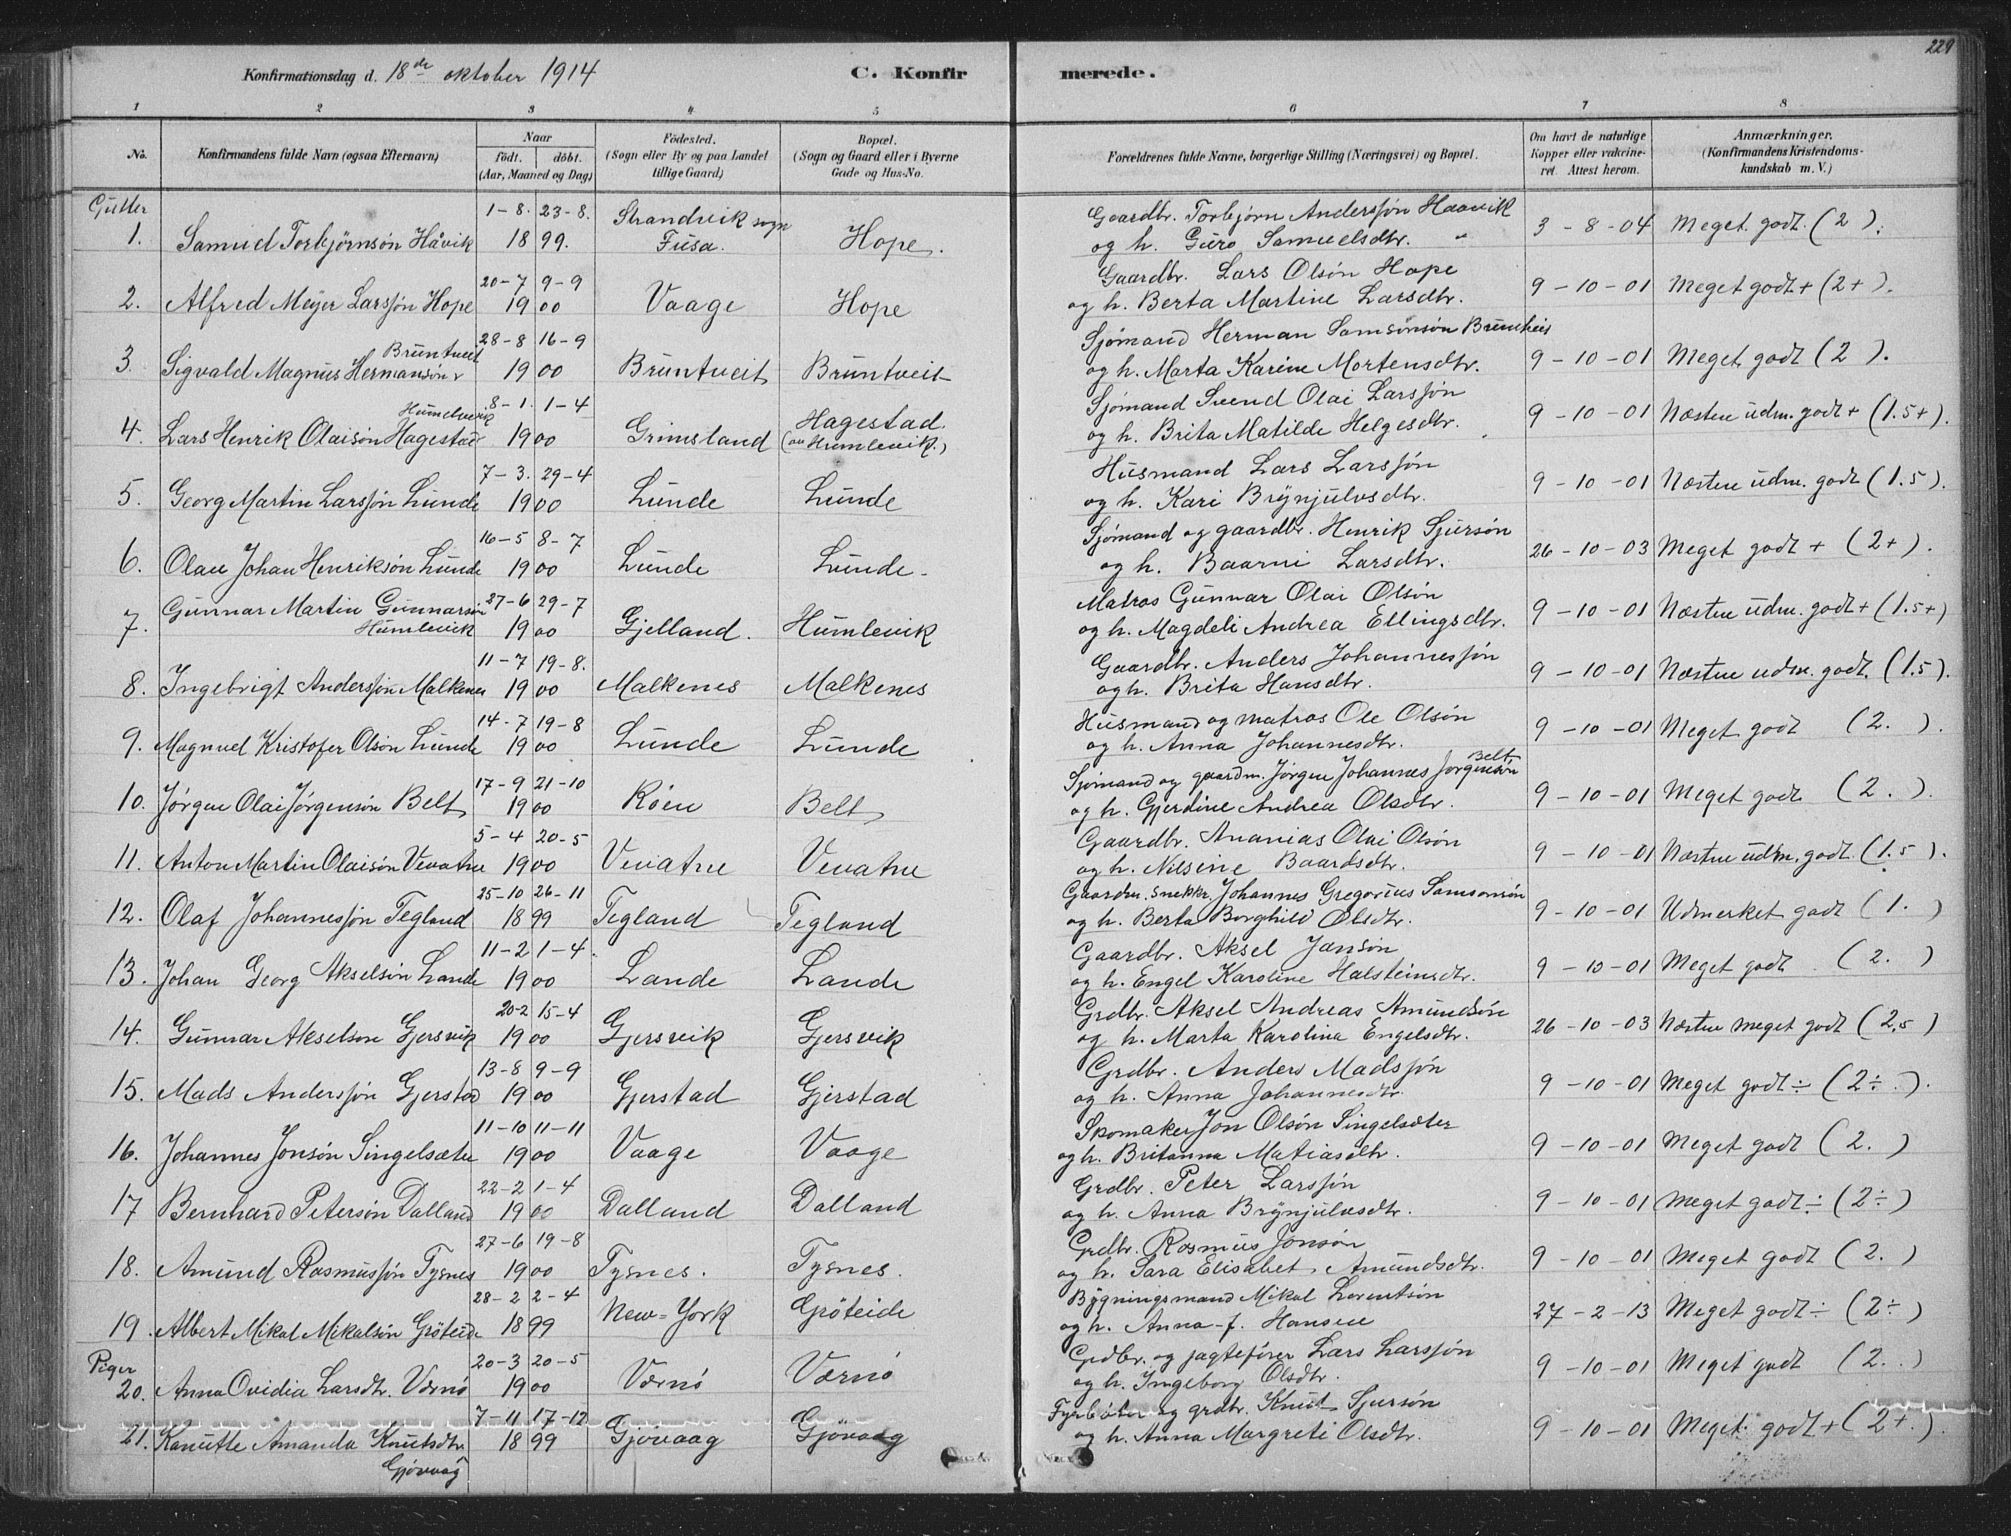 229
Konfirmationsdag d. 18de oktober 1914 C. Konfirmerede.
1 2 3 4 5 6 7 8
No. Konfirmandens fulde Navn (ogsaa Efternavn) Naar födt. döbt. (Aar, Maaned og Dag) Födested. (Sogn eller By og paa Landet tillige Gaard) Bopæl. (Sogn og Gaard eller i Byerne Gade og Hus-No. Forældrenes fulde Navne, borgerlige Stilling (Næringsvei) og Bopæl. Om havt de naturlige Kopper eller vakcineret. Attest herom. Anmærkninger. (Konfirmandens Kristendomskundskab m. V.)
Gutter
1. Samuel Torbjörnsön Håvik 1-8. 1899. 23-8. Strandvik sogn Fusa. Hope. Gaardbr. Torbjörn Anderssön Haavik 3-8-04 Meget godt. (2).
og h. Guro Samuelsdtr. "
2. Alfred Meyer Larssön Hope 20-7 1900 9-9 Vaage Hope Gaardbr. Lars Olsön Hope 9-10-01 Meget godt+ (2+).
og h. Berta Martine Larsdtr.
3. Sigvald Magnus Hermansön Bruntveit 28-8 1900 16-9 Bruntveit Bruntveit Sjömand Herman Samsonsön Bruntveit 9-10-01 Meget godt (2).
og h. Marta Karine Mortensdtr.
4. Lars Henrik Olaisön Hagestad Humlevik 8-1. 1900 1-4 Grimsland Hagestad. (nu Humlevik.) Sjömand Svend Olai Larssön 9-10-01 Næsten udm. godt+ (1.5+).
og h. Brita Matilde Helgesdtr.
5. Georg Martin Larssön Lunde 7-3. 1900 29-4 Lunde Lunde Husmand Lars Larssön 9-10-01 Næsten udm. godt (1.5).
og h. Kari Brynjulvsdtr.
6. Olau Johan Henriksön Lunde 16-5 1900 8-7 Lunde Lunde. Sjömand og gaardbr. Henrik Sjursön 26-10-03 Meget godt + (2+).
og h. Baarni Larsdtr.
7. Gunnar Martin Gunnarsön Humlevik 27-6 1900 29-7 Gjelland. Humlevik Matros Gunnar Olai Olsön 9-10-01 Næsten udm. godt+ (1.5+)
og h. Magdeli Andrea Ellingsdtr.
8. Ingebrigt Anderssön Malkenes 11-7 1900 19-8. Malkenes Malkenes Gaardbr. Anders Johannessön 9-10-01 Næsten udm. godt. (1.5).
og h. Brita Hansdtr.
9. Magnvel Kristofer Olsön Lunde 14-7 1900 19-8 Lunde Lunde Husmand og matros Ole Olsön 9-10-01 Meget godt (2.).
og h. Anna Johannesdtr.
10. Jörgen Olai Jörgensön Belt 17-9 1900 21-10 Röen Belt Sjömand og gaardm. Jörgen Johannes Jörgensön Belt 9-10-01 Meget godt (2.).
og h. Gjerdine Andrea Olsdtr.
11. Anton Martin Olaisön Vevatne 5-4 1900 20-5 Vevatne Vevatne Gaardbr. Ananias Olai Olsön 9-10-01 Næsten udm. godt (1.5).
og h. Nilsine Baardsdtr.
12. Olaf Johannessön Tegland 25-10 1899 26-11 Tegland Tegland Gaardm. Snekkr. Johannes Gregorius Samsonsön 9-10-01 Udmerket godt (1.)
og h. Berta Borghild Olsdtr.
13. Johan Georg Akselsön Lande 11-2 1900 1-4. Lande Lande Gaardbr. Aksel Jansön 9-10-01 Meget godt. (2.)
og h. Engel Karoline Halsteinsdtr.
14. Gunnar Akselson Gjersvik 20-2 1900 15-4 Gjersvik Gjersvik Grdbr. Aksel Andreas Amundsön 26-10-03 Næsten meget godt (2,5)
og h. Marta Karolina Engelsdtr.
15. Mads Anderssön Gjerstad 13-8 1900 9-9 Gjerstad Gjerstad Grdbr. Anders Madssön 9-10-01 Meget godt ÷ (2÷.).
og h. Anna Johannesdtr.
16. Johannes Jonsön Singelsæter 11-10 1900 11-11 Vaage Vaage Skomaker Jon Olsön Singelsæter 9-10-01 Meget godt (2.)
og h. Britanna Matiasdtr.
17 Bernhard Petersön Dalland 22-2 1900 1-4 Dalland Dalland Grdbr. Peter Larssön 9-10-01 Meget godt ÷ (2÷)
og h. Anna Brynjulvsdtr.
18. Amund Rasmussön Tysnes 27-6 1900 19-8 Tysnes. Tysnes. Grdbr. Rasmus Jonsön 9-10-01 Meget godt (2.)
og h. Sara Elisabet Amundsdtr.
19. Albert Mikal Mikalsön Gröteide 28-2 1899 2-4 New-York Gröteide Bygningsmand Mikal Lorentsön 27-2-13 Meget godt ÷ (2÷)
og h. Anna f. Hansen
Piger
20. Anna Ovidia Larsdtr. Værnö 20-3 1900 20-5 Værnö Værnö Grdbr. og jagtefører Lars Larssön 9-10-01 Meget godt (2.)
og h. Ingeborg Olsdtr.
21. Kanutte Amanda Knutsdtr. Gjövaag 7-11 1899 17-12 Gjövaag Gjövaag Fyrböter og grdbr. Knut Sjursön 9-10-01 Meget godt+ (2+.).
og h. Anna Margreti Olsdtr.